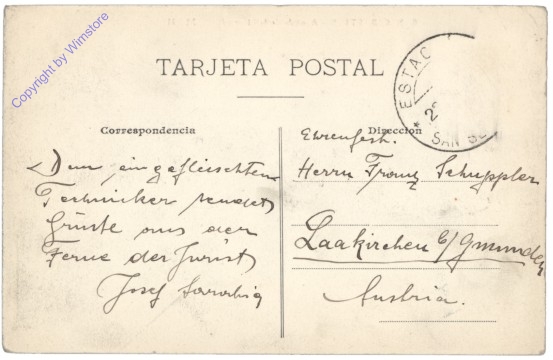 Copyright by Wimstore
TARJETA POSTAL
ESTAC
SAN SE
Correspondencia
Dirección
Dem eingefleischten
Techniker sendet
Grüße aus der
Ferne der Jurist
Josef
Ehrenfest.
Herrn Franz Schuppler
Laakirchen b/Gmunden
Austria.